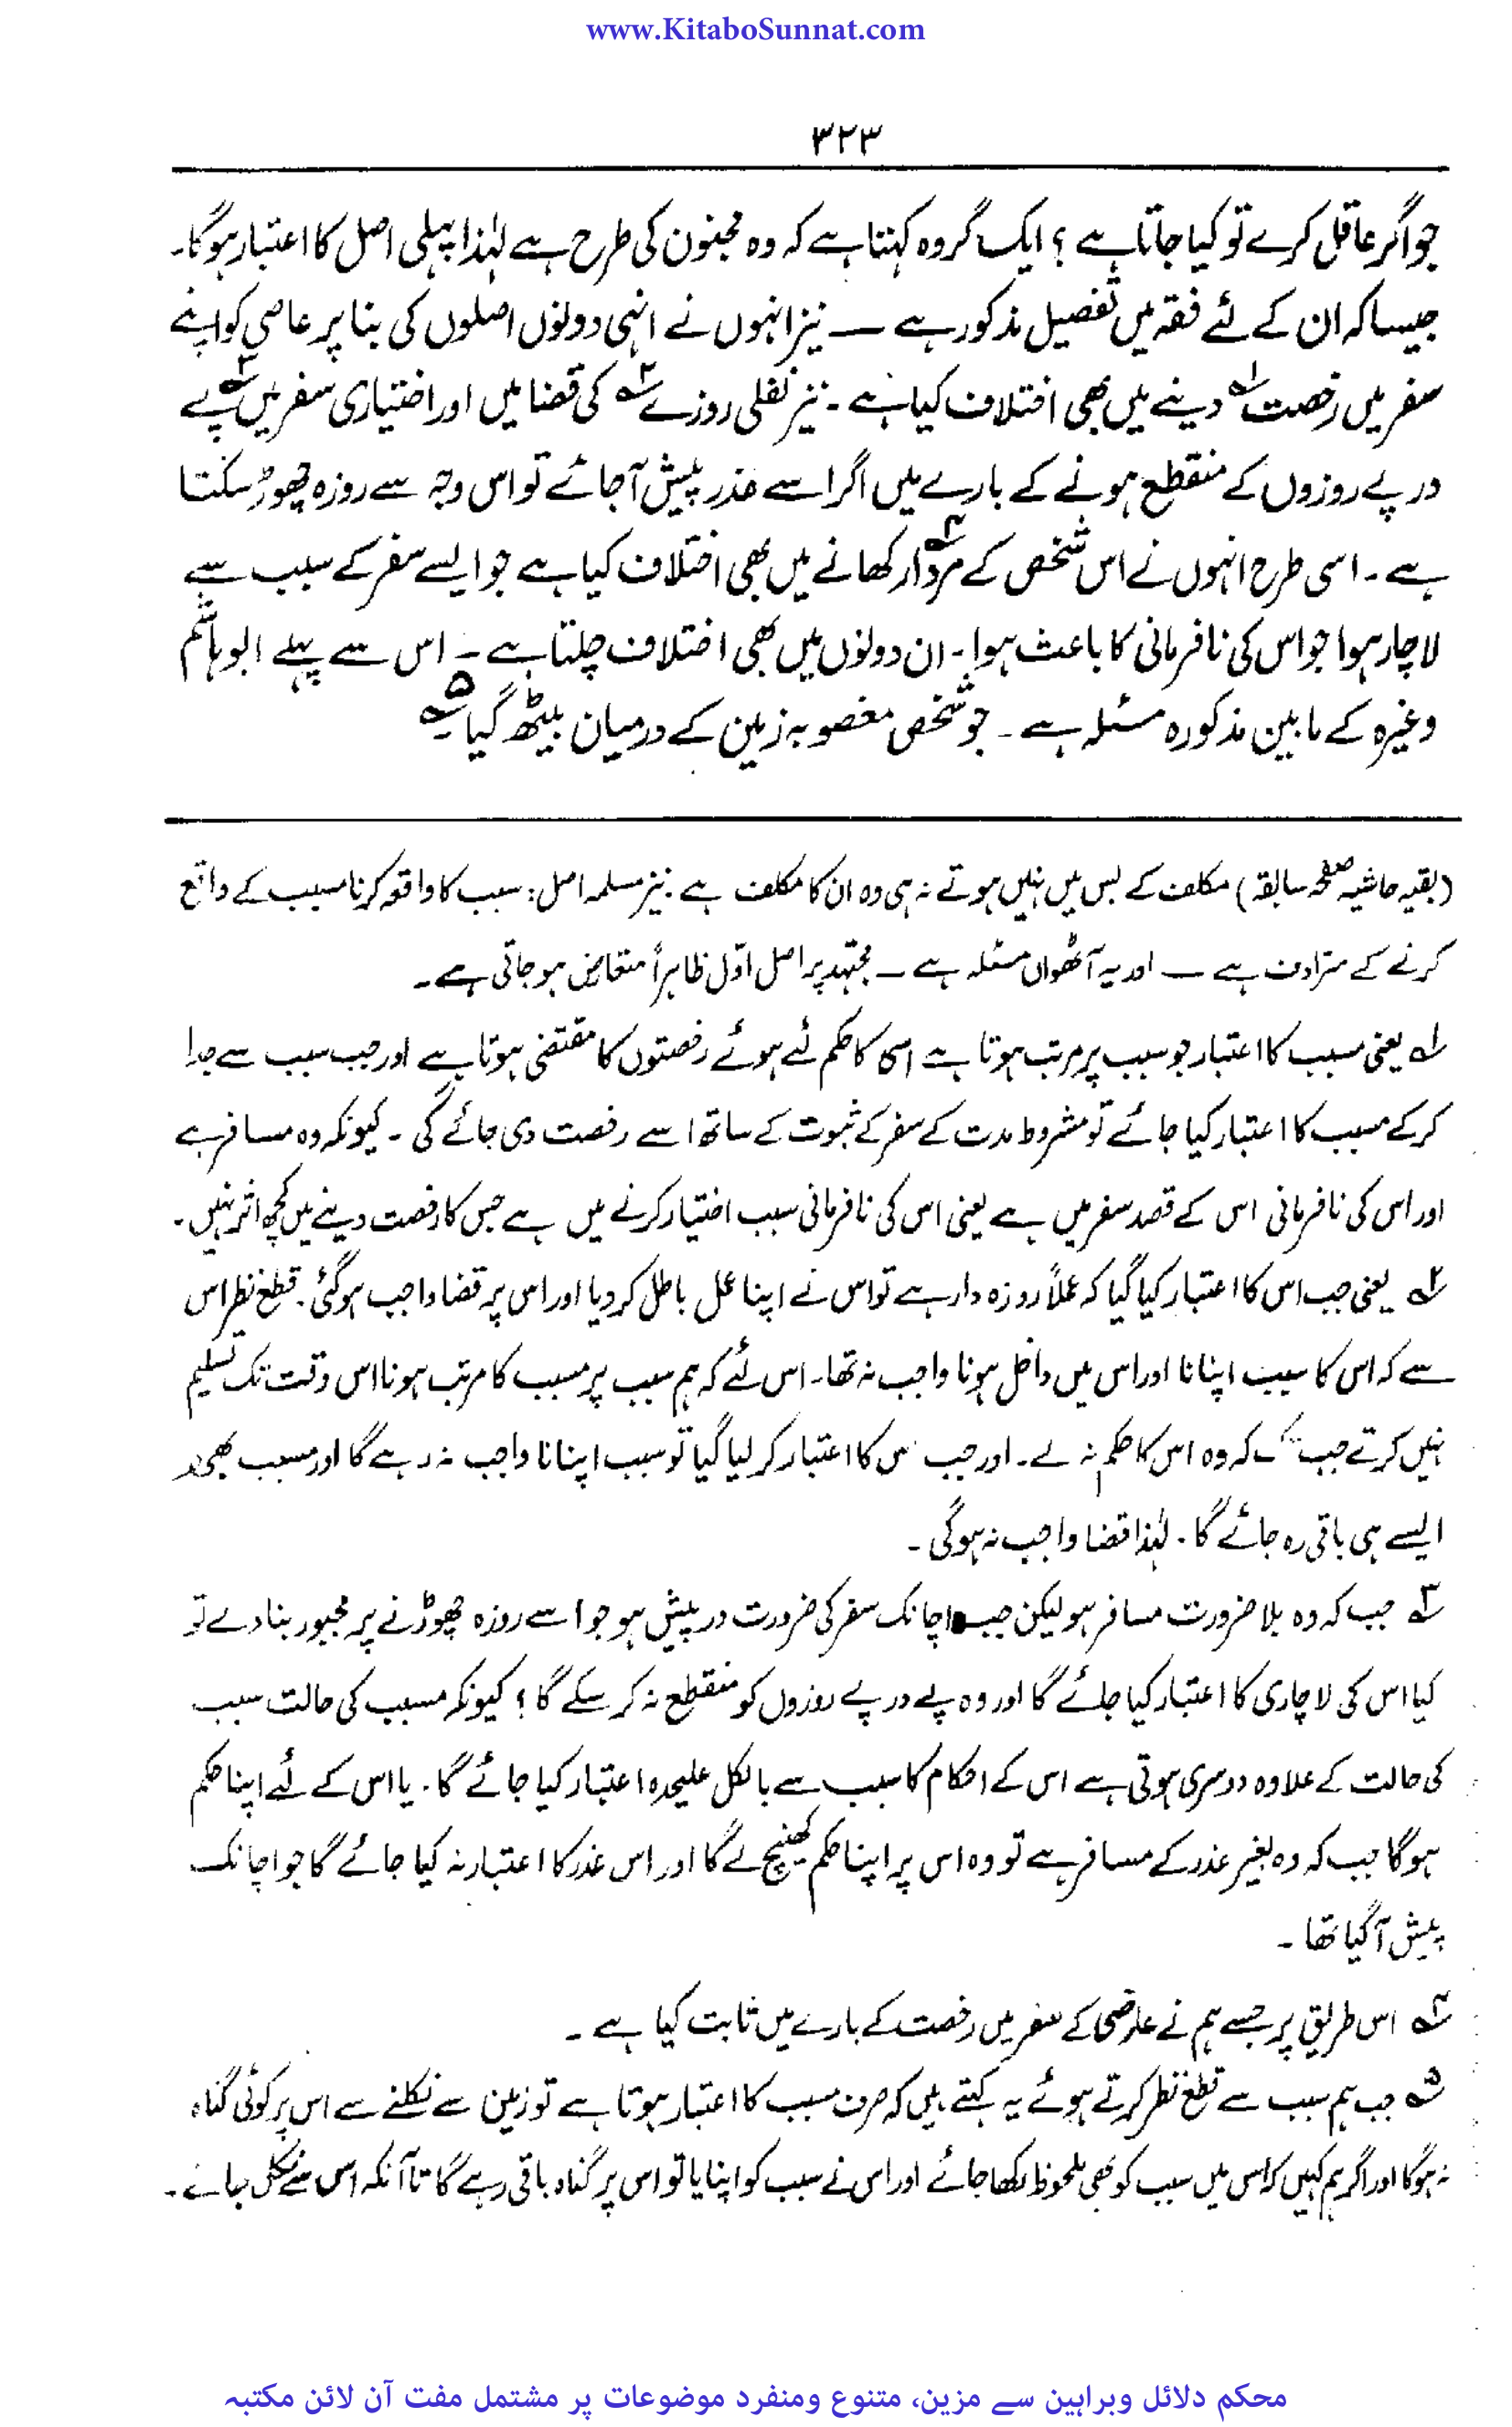 www.KitaboSunnat.com
۳۲۳
جو اگر عاقل کرے تو کیا جاتا ہے ؟ ایک گروہ کہتا ہے کہ وہ مجنون کی طرح ہے لہٰذا پہلی اصل کا اعتبار ہوگا۔
جیسا کہ ان کے لئے فقہ میں تفصیل مذکور ہے ــــ نیز انہوں نے انہی دونوں اصلوں کی بنا پر عاصی کو اپنے
سفر میں رخصت ۱؎ دینے میں بھی اختلاف کیا ہے ۔ نیز نفلی روزے ۲؎ کی قضا میں اور اختیاری سفر میں ۳؎ پے
در پے روزوں کے منقطع ہونے کے بارے میں اگر اسے عذر پیش آجائے تو اس وجہ سے روزہ چھوڑ سکتا
ہے ۔ اسی طرح انہوں نے اس شخص کے مردار ۴؎ کھانے میں بھی اختلاف کیا ہے جو ایسے سفر کے سبب سے
لاچار ہوا جو اس کی نافرمانی کا باعث ہوا ۔ ان دونوں میں بھی اختلاف چلتا ہے ۔ اس سے پہلے ابو ہاشم
وغیرہ کے مابین مذکورہ مسئلہ ہے ۔ جو شخص مغصوبہ زمین کے درمیان بیٹھ گیا ۵؎
(بقیہ حاشیہ صفحہ سابقہ) مکلف کے بس میں نہیں ہوتے نہ ہی وہ ان کا مکلف ہے ۔ نیز مسلمہ اصل : سبب کا واقع کرنا مسبب کے واقع
کرنے کے مترادف ہے ــ اور یہ آٹھواں مسئلہ ہے ــ مجتہد پر اصل اوّل ظاہراً متعارض ہو جاتی ہے ۔
۱؎ یعنی مسبب کا اعتبار جو سبب پر مرتب ہوتا ہے اسی کا حکم لئے ہوئے رخصتوں کا مقتضی ہوتا ہے اور جب سبب سے جدا
کرکے مسبب کا اعتبار کیا جائے تو مشروط مدت کے سفر کے ثبوت کے ساتھ اسے رخصت دی جائے گی ۔ کیونکہ وہ مسافر ہے
اور اس کی نافرمانی اس کے قصد سفر میں ہے یعنی اس کی نافرمانی سبب اختیار کرنے میں ہے جس کا رخصت دینے میں کچھ اثر نہیں ۔
۲؎ یعنی جب اس کا اعتبار کیا گیا کہ عملاً روزہ دار ہے تو اس نے اپنا عمل باطل کر دیا اور اس پر قضا واجب ہوگئی ۔ قطع نظر اس
سے کہ اس کا سبب اپنانا اور اس میں داخل ہونا واجب نہ تھا ۔ اس لئے کہ ہم سبب پر مسبب کا مرتب ہونا اس وقت تک تسلیم
نہیں کرتے جب تک کہ وہ اس کا حکم نہ لے ۔ اور جب اس کا اعتبار کر لیا گیا تو سبب اپنانا واجب نہ رہے گا اور مسبب بھی
ایسے ہی باقی رہ جائے گا ۔ لہٰذا قضا واجب نہ ہوگی ۔
۳؎ جب کہ وہ بلا ضرورت مسافر ہو لیکن جب اچانک سفر کی ضرورت درپیش ہو جو اسے روزہ چھوڑنے پر مجبور بنا دے تو
کیا اس کی لاچاری کا اعتبار کیا جائے گا اور وہ پے در پے روزوں کو منقطع نہ کر سکے گا ؟ کیونکہ مسبب کی حالت سبب
کی حالت کے علاوہ دوسری ہوتی ہے اس کے احکام کا سبب سے بالکل علیحدہ اعتبار کیا جائے گا ۔ یا اس کے لئے اپنا حکم
ہوگا جب کہ وہ بغیر عذر کے مسافر ہے تو وہ اس پر اپنا حکم کھینچ لے گا اور اس عذر کا اعتبار نہ کیا جائے گا جو اچانک
پیش آگیا تھا ۔
۴؎ اس طریق پر جسے ہم نے عاصی کے سفر میں رخصت کے بارے میں ثابت کیا ہے ۔
۵؎ جب ہم سبب سے قطع نظر کرتے ہوئے یہ کہتے ہیں کہ صرف مسبب کا اعتبار ہوتا ہے تو زمین سے نکلنے سے اس پر کوئی گناہ
نہ ہوگا اور اگر ہم کہیں کہ اس میں سبب کو بھی ملحوظ رکھا جائے اور اس نے سبب کو اپنایا تو اس پر گناہ باقی رہے گا تا آنکہ اس سے نکل جائے ۔
محکم دلائل وبراہین سے مزین، متنوع ومنفرد موضوعات پر مشتمل مفت آن لائن مکتبہ